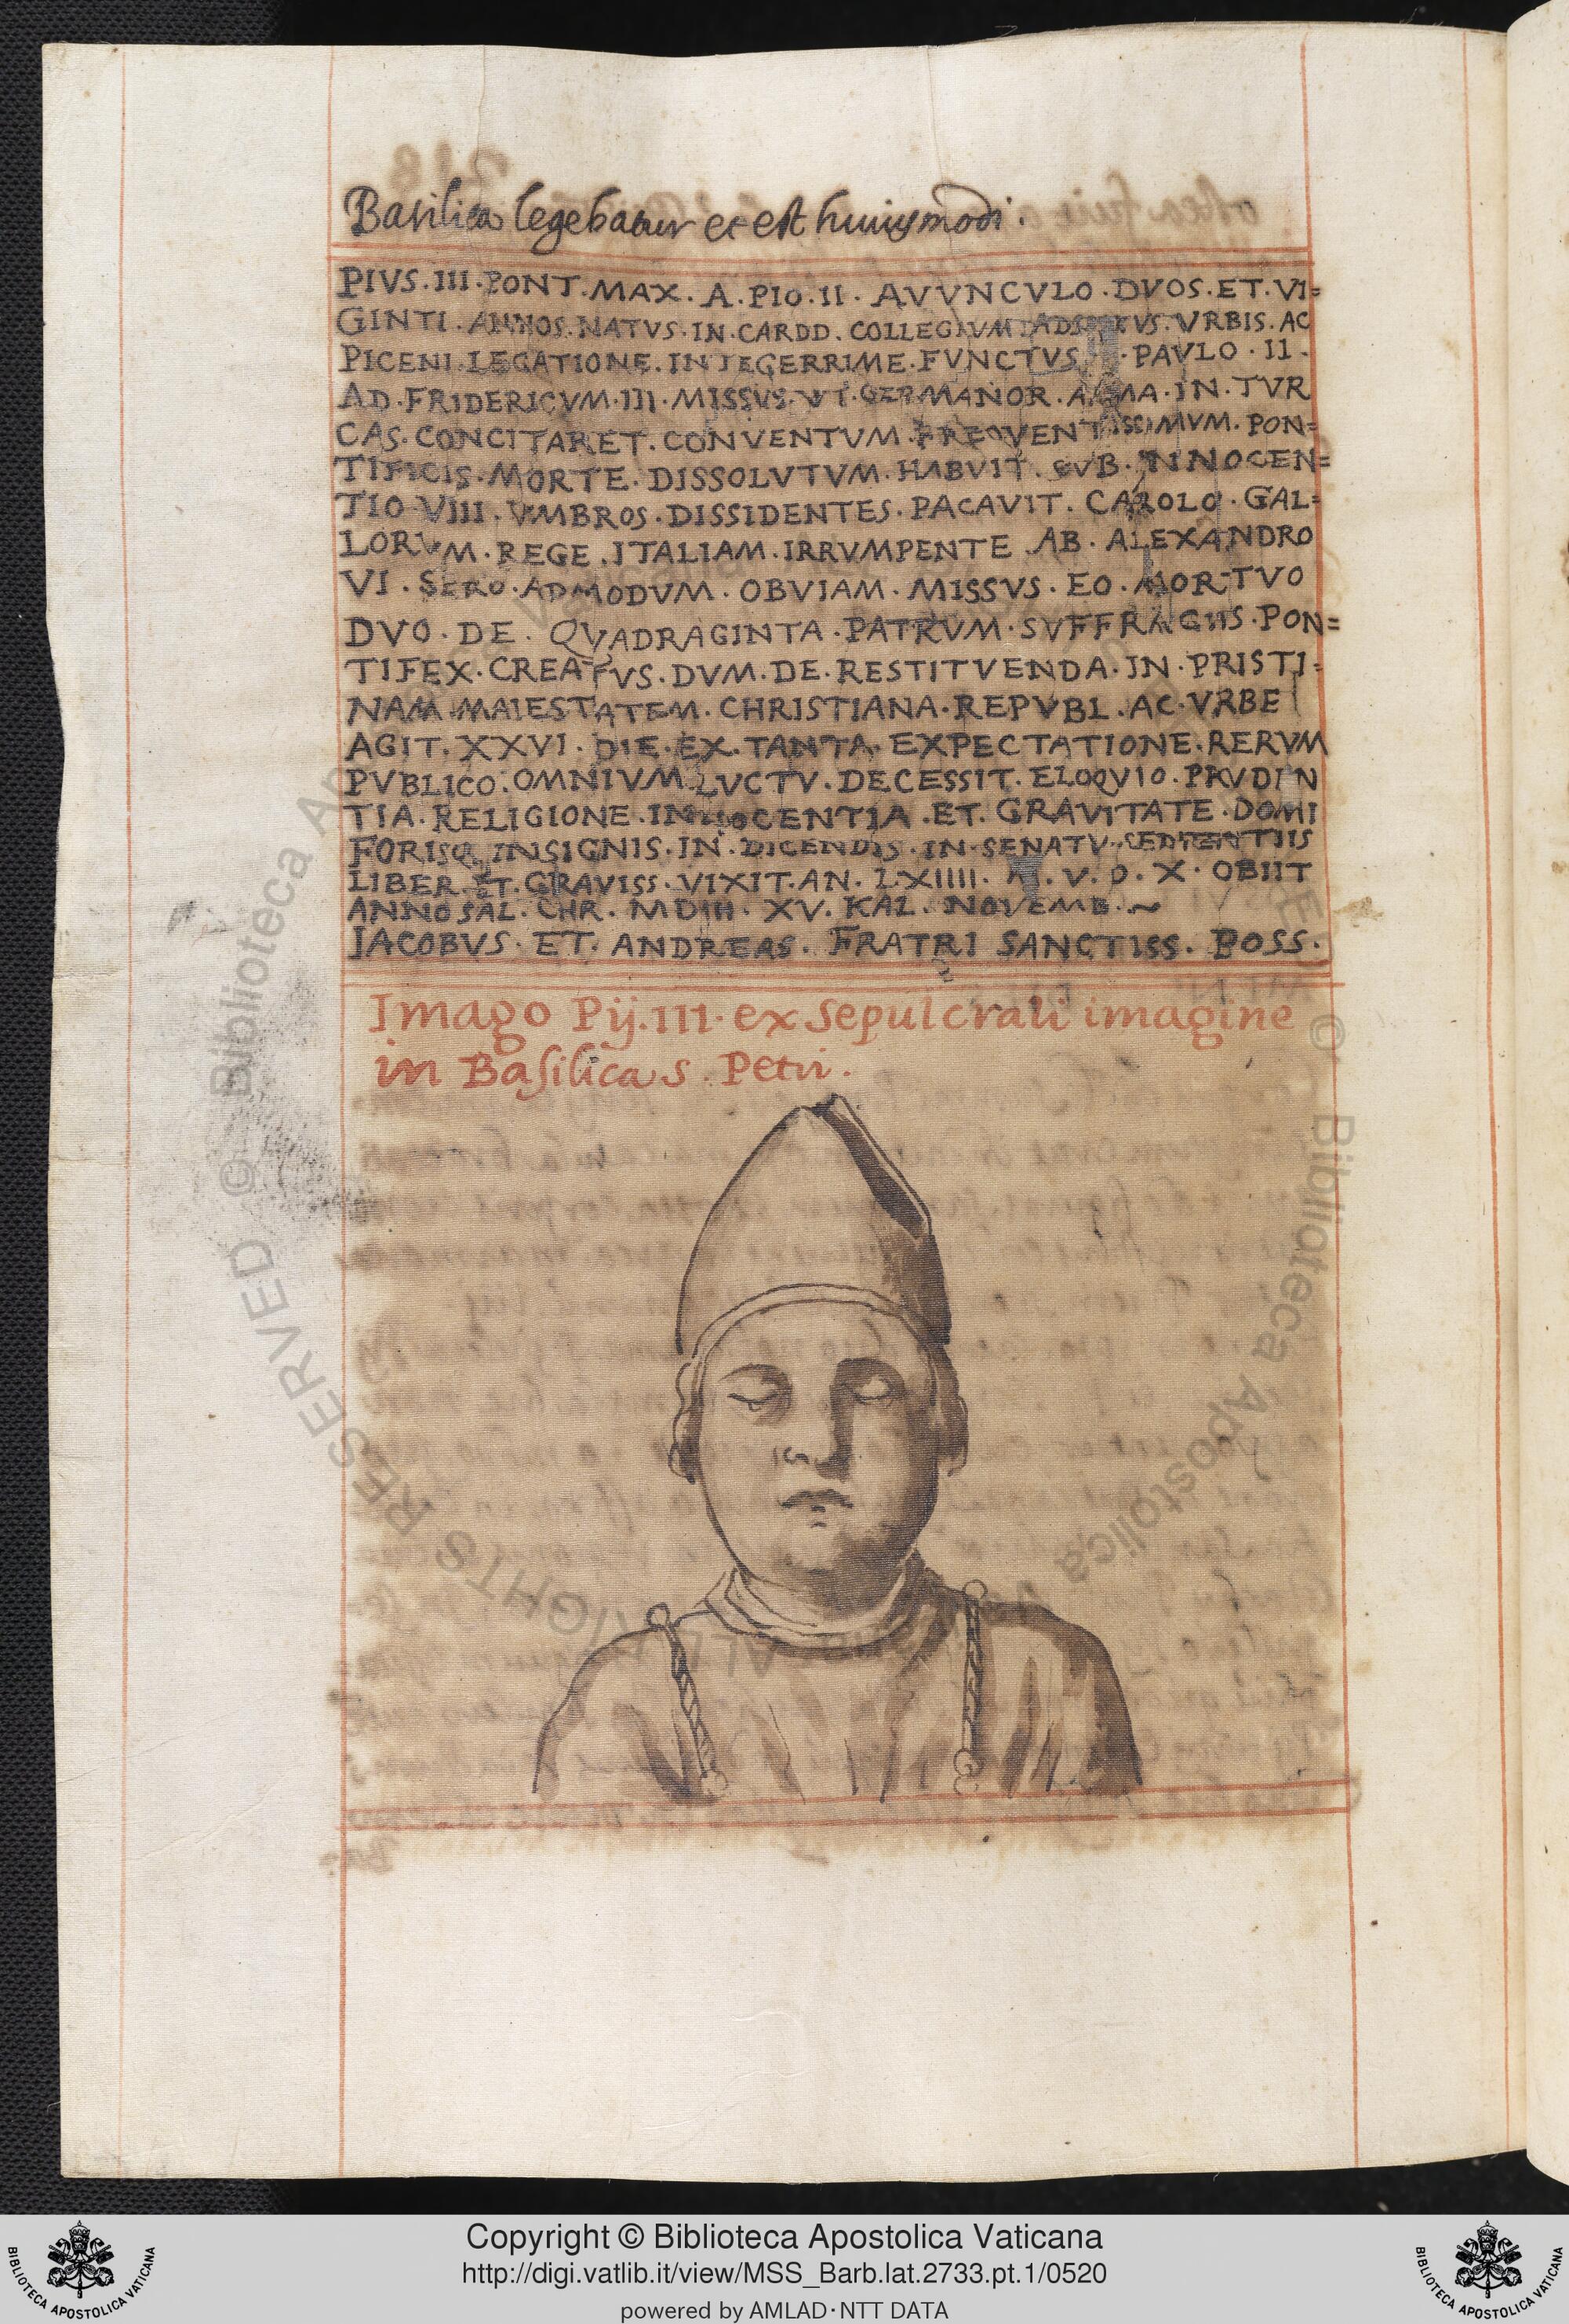 Basilica legebatur et est huiusmodi.
PIVS.III.PONT.MAX.A.PIO.II.AVVNCVLO.DVOS.ET.VI=
GINTI.ANNOS.NATVS.IN.CARDD.COLLEGIVM.VRBIS.AC
PICENI.LEGATIONE.INTEGERRIME.FVNCTVS.PAVLO.II.
AD.FRIDERICVM.III.MISSVS.VT.GERMANOR.ARMA.IN.TVR
CAS.CONCITARET.CONVENTVM.FREQVENTISSIMVM.PON=
TIFICIS.MORTE.DISSOLVTVM.HABVIT.SVB.INNOCEN=
TIO.VIII.VMBROS.DISSIDENTES.PACAVIT.CAROLO.GAL=
LORVM.REGE.ITALIAM.IRRVMPENTE.AB.ALEXANDRO
VI.SERO.ADMODVM.OBVIAM.MISSVS.EO.MORTVO
DVO.DE.QVADRAGINTA.PATRVM.SVFFRAGIIS.PON=
TIFEX.CREATVS.DVM.DE.RESTITVENDA.IN.PRISTI=
NAM.MAIESTATEM.CHRISTIANA.REPVBL.AC.VRBE
AGIT.XXVI.DIE.EX.TANTA.EXPECTATIONE.RERVM
PVBLICO.OMNIVM.LVCTV.DECESSIT.ELOQVIO.PRVDIN
TIA.RELIGIONE.INNOCENTIA.ET.GRAVITATE.DOMI
FORISQ.INSIGNIS.IN.DICENDIS.IN.SENATV.SENTENTIIS
LIBER.ET.GRAVISS.VIXIT.AN.LXIIII.M.V.D.X.OBIIT
ANNO SAL.CHR.MDIII.XV.KAL.NOVEMB.~
JACOBVS.ET.ANDREAS.FRATRI SANCTISS.POSS.
Imago Pij.III.ex sepulcrali imagine
in Basilica S. Petri.
© Biblioteca Apostolica Vaticana
ALL RIGHTS RESERVED
Copyright © Biblioteca Apostolica Vaticana
http://digi.vatlib.it/view/MSS_Barb.lat.2733.pt.1/0520
powered by AMLAD·NTT DATA
BIBLIOTECA APOSTOLICA VATICANA
BIBLIOTECA APOSTOLICA VATICANA